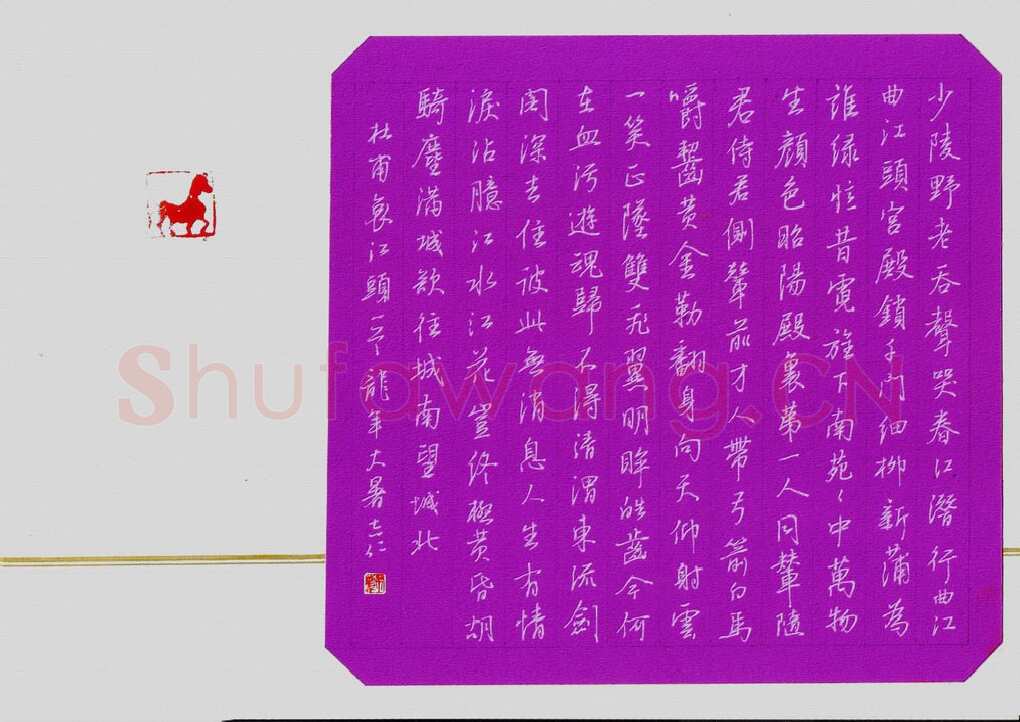 少陵野老吞聲哭春江潛行曲江
曲江頭宮殿鎖千門細柳新蒲為
誰綠憶昔霓旌下南苑〻中萬物
生顏色昭陽殿裏第一人同輦隨
君侍君側輦前才人帶弓箭白馬
嚼齧黃金勒翻身向天仰射雲
一笑正墜雙飛翼明眸皓齒今何
在血污遊魂歸不得清渭東流劍
閣深去住彼此無消息人生有情
淚沾臆江水江花豈終極黃昏胡
騎塵滿城欲往城南望城北
杜甫哀江頭一首龍年大暑
Shufawang.CN